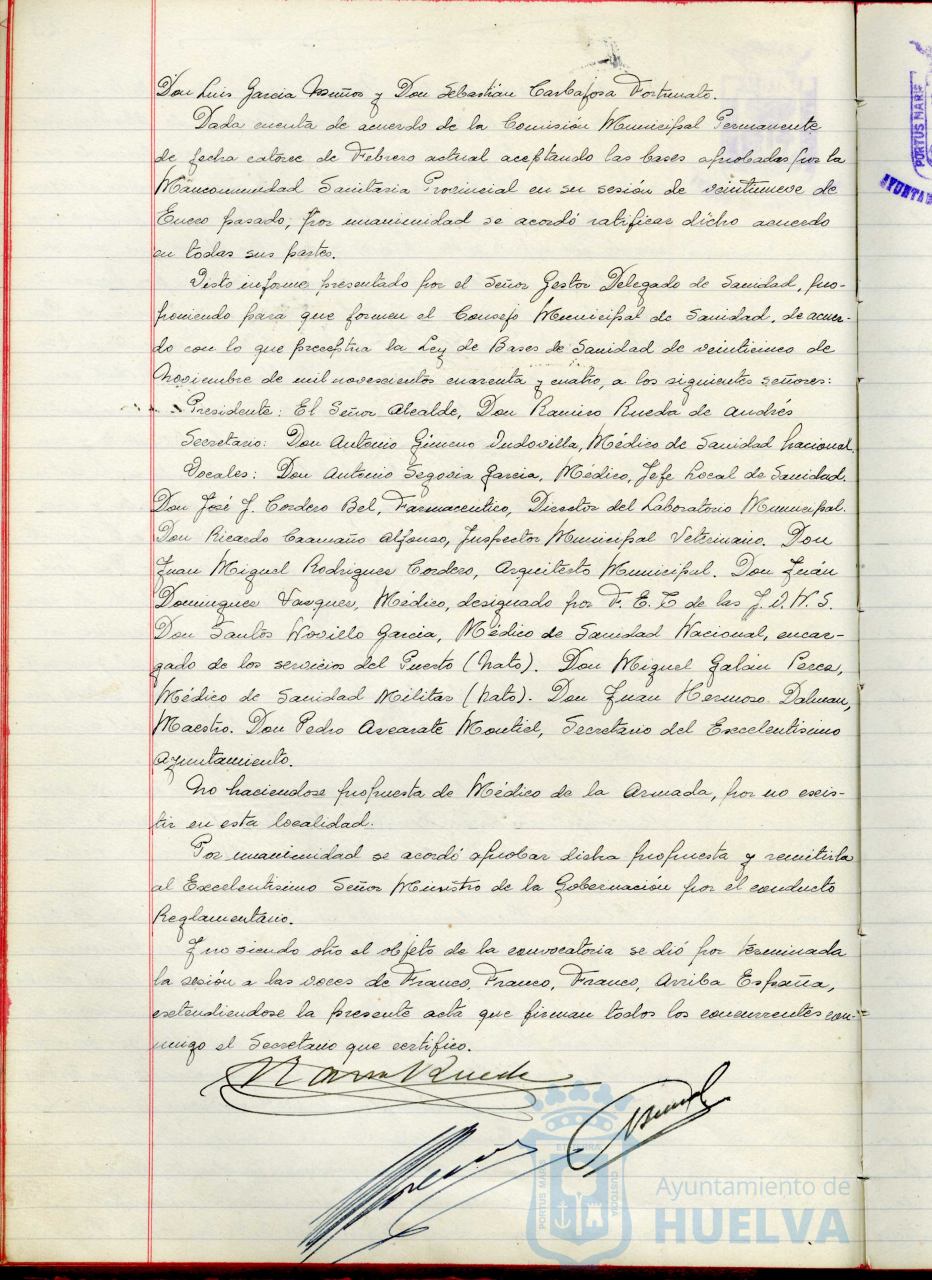 Don Luis Garcia Muños y Don Sebastián Carbajosa Fortunato.
Dada cuenta de acuerdo de la Comisión Municipal Permanente
de fecha catorce de Febrero actual aceptando las bases aprobadas por la
Mancomunidad Sanitaria Provincial en su sesión de veintinueve de
Enero pasado, por unanimidad se acordó ratificar dicho acuerdo
en todas sus partes.
Visto informe presentado por el Señor Gestor Delegado de Sanidad, pro-
poniendo para que formen el Consejo Municipal de Sanidad, de acuer-
do con lo que preceptua la Ley de Bases de Sanidad de veinticinco de
Noviembre de mil novescientos cuarenta y cuatro, a los siguientes señores:
Presidente: El Señor Alcalde, Don Ramiro Rueda de Andrés
Secretario: Don Antonio Gimeno Indovilla, Médico de Sanidad Nacional.
Vocales: Don Antonio Segovia Garcia, Médico, Jefe Local de Sanidad.
Don José J. Cordero Bel, Farmaceutico, Director del Laboratorio Municipal.
Don Ricardo Caamaño Alfonso, Inspector Municipal Veterinario. Don
Juan Miguel Rodrigues Cordero, Arquitecto Municipal. Don Juán
Domingues Vasques, Médico, designado por F.E.T de las J.O.N.S.
Don Santos Novillo Garcia, Médico de Sanidad Nacional, encar-
gado de los servicios del Puerto (Nato). Don Miguel Galán Perea,
Médico de Sanidad Militar (Nato). Don Juan Hermoso Dalman,
Maestro. Don Pedro Ascarate Montiel, Secretario del Excelentisimo
Ayuntamiento.
No haciendose propuesta de Médico de la Armada, por no exis-
tir en esta localidad.
Por unanimidad se acordó aprobar dicha propuesta y remitirla
al Excelentisimo Señor Ministro de la Gobernación por el conducto
Reglamentario.
Y no siendo otro el objeto de la convocatoria se dió por terminada
la sesión a las voces de Franco, Franco, Franco, Arriba España,
extendiendose la presente acta que firman todos los concurrentes con-
migo el Secretario que certifico.
Ramiro Rueda
PORTUS MARIS
ET TERRAE
CUSTODIA
Ayuntamiento de
HUELVA
PORTUS MARIS
AYUNTA